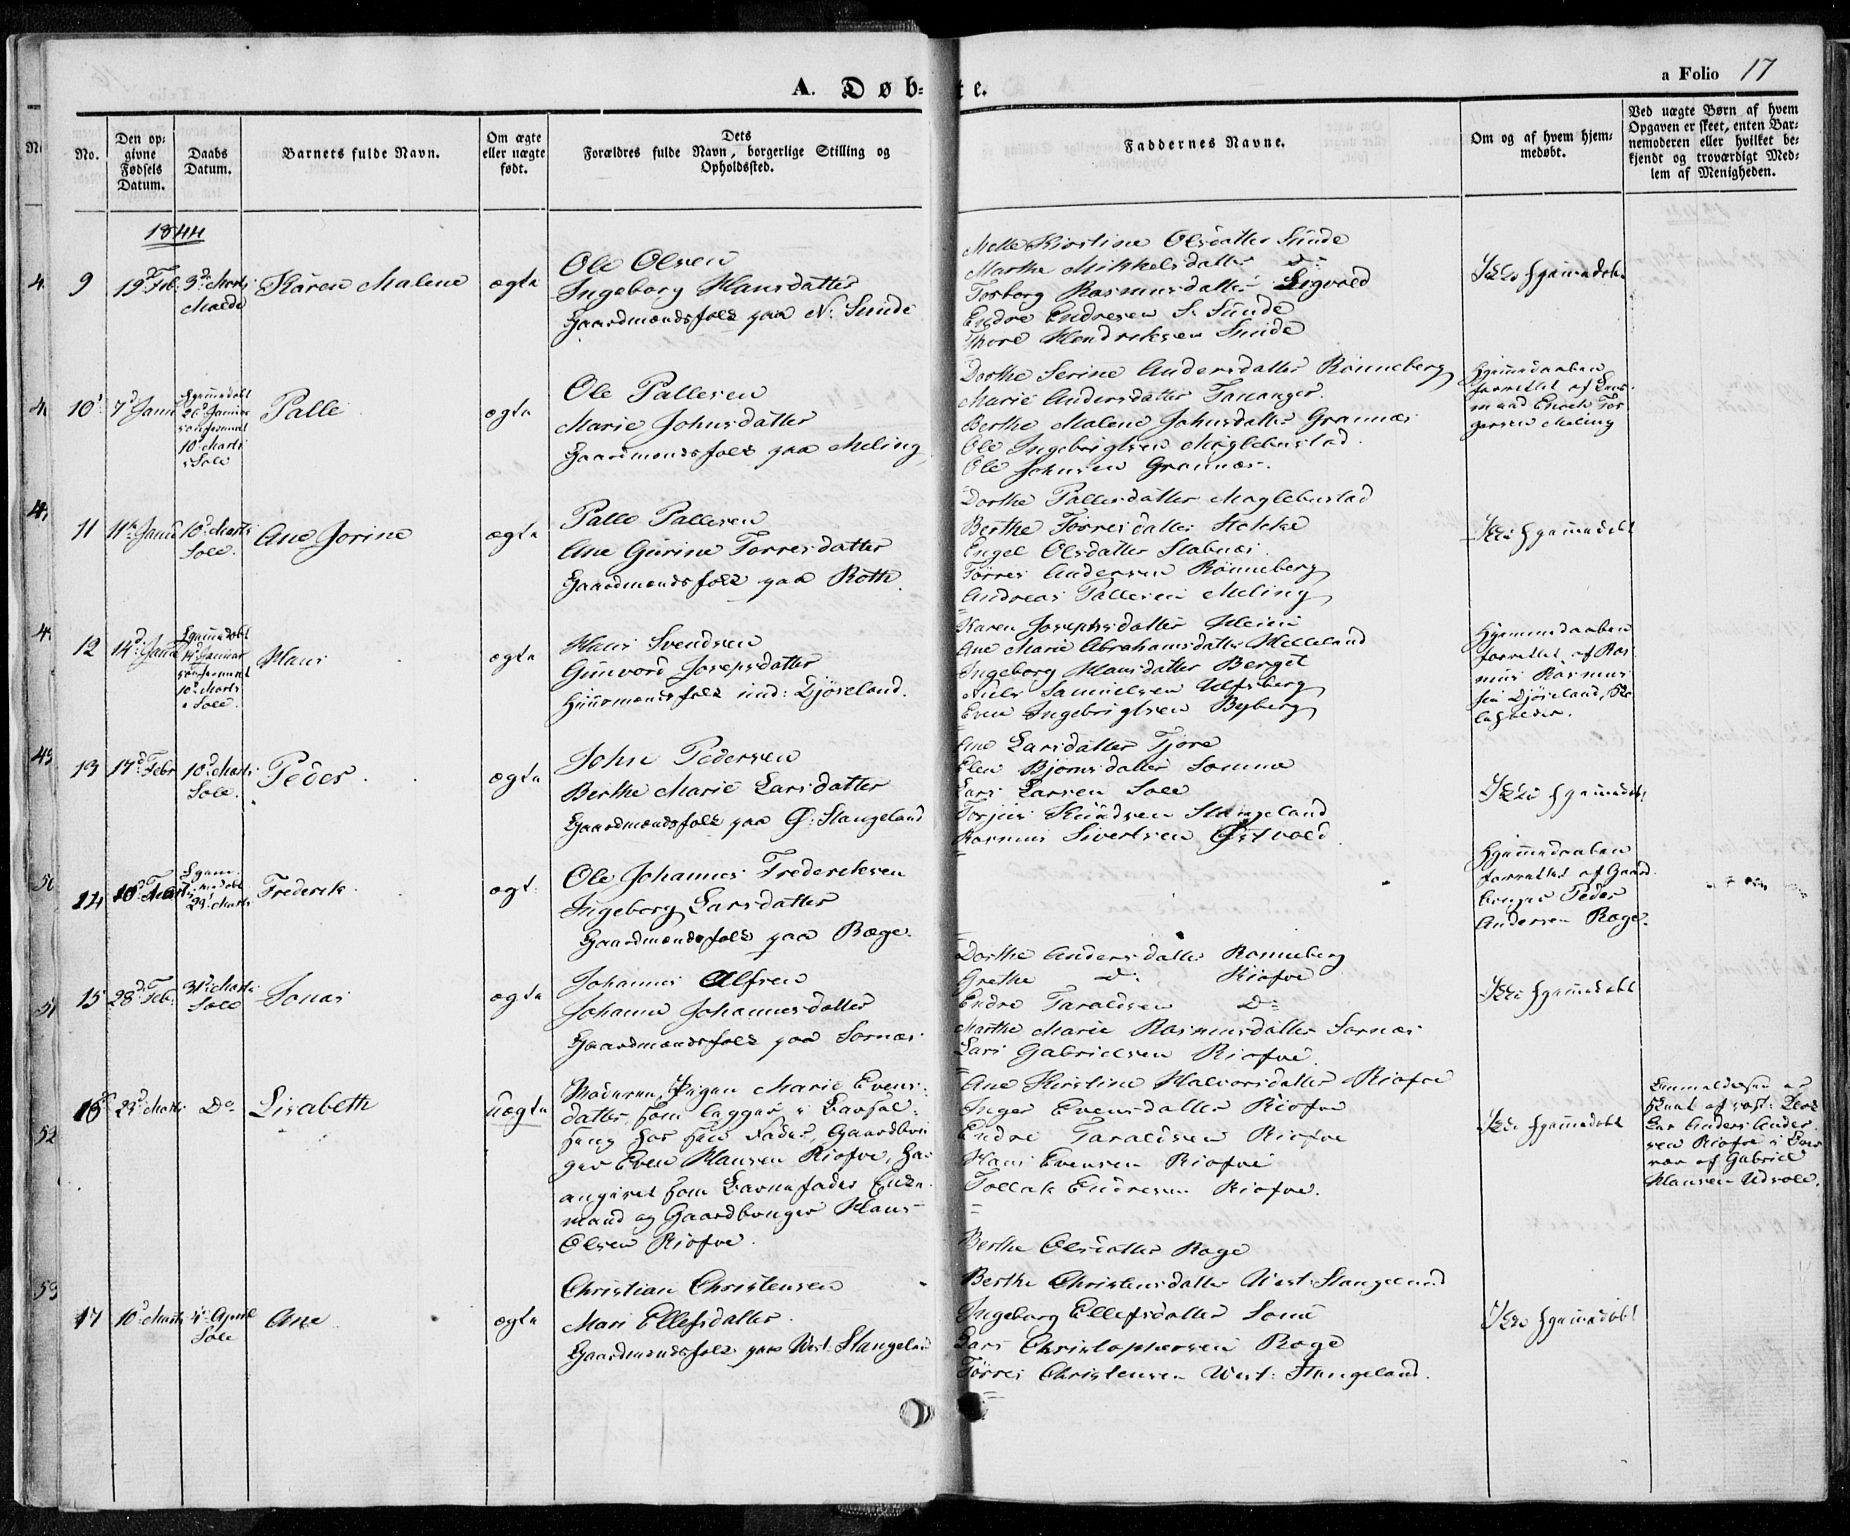 A. Døb-
te.
a Folio 17
No.
Den op-
givne
Fødsels
Datum.
Daabs
Datum.
Barnets fulde Navn.
Om ægte
eller uægte
født.
Dets
Forældres fulde Navn, borgerlige Stilling og
Opholdssted.
Faddernes Navne.
Om og af hvem hjem-
medøbt.
Ved uægte Børn af hvem
Opgaven er skeet, enten Bar-
nemoderen eller hvilket be-
kjendt og troværdigt Med-
lem af Menigheden.
1844
9
19d Feb.
3d Marts
Malde
Karen Malene
ægte
Ole Olsen
Ingeborg Hansdatter
Gaardmandsfolk paa N. Sunde
Mette Kirstine Olsdatter Sunde
Marthe Mikkelsdatter Do
Torborg Rasmusdatter
Endre Endresen S. Sunde
Thore Hendriksen Sunde
Ikke hjemmedøbt
10
7d Janu
hjemmedøbt
26d Januar
10d Marts
i Sole
Palle
ægte
Ole Pallesen
Marie Johnsdatter
Gaardmandsfolk paa Meling
Dorthe Serine Andersdatter Rønneberg
Marie Andersdatter Tananger
Berthe Malene Johnsdatter Grannæs
Ole Ingebrigtsen Maglebustad
Ole Johnsen Grannæs.
Hjemmedaaben
forrettet af Lens-
mand Enoch Tor
gersen Meling
11
11te Janu
10d Marts
Sole.
Ane Jorine
ægte
Palle Pallesen
Ane Gurine Torresdatter
Gaardmandsfolk paa Roth.
Dorthe Pallesdatter Maglebustad
Berthe Torresdatter
Engel Olsdatter
Tørres Andersen Rønneberg
Andreas Pallesen Meling
Ikke hjemmedøbt
12
14d Janu
hjemmedøbt
14d Januar
10d Marts
i Sole.
Hans
ægte
Hans Svendsen
Gunvord Josepsdatter
Huusmandsfolk und: Djøseland.
Karen Josephsdatter
Ane Marie Abrahamsdatter Helleland
Ingeborg Hansdatter Berget
Niels Samuelsen
Even Ingebrigtsen Byberg
Hjemmedaaben
forrettet af Ras
mus Rasmus
sen Djøseland,
13
17d Febr
10d Marts
Sole.
Peder
ægte
John Pedersen
Berthe Marie Larsdatter
Gaardmandsfolk paa Ø: Stangeland
Ane Larsdatter Tjore
Elen Bjørnsdatter Somme
Lars Larsen Sole
Torjus Knudsen Stangeland
Rasmus Sivertsen Østvold
Ikke hjemmedøbt
14
hjem-
medøbt
29d Marts
Frederik
ægt:
Ole Johannes Frederiksen
Ingeborg Larsdatter
Gaardmandsfolk paa Ræge.
Hjemmedaaben
forrettet af Gaard
bruger Peder
Andersen Ræge.
15
28d Feb.
31te Marts
Sole
Jonas
ægte
Johannes Olfsen
Johanne Johannesdatter
Gaardmandsfolk paa Sørnæs
Dorthe Andersdatter Rønneberg
Grethe Do Risfve
Endre Taraldsen Do
Marthe Marie Rasmusdatter Sørnæs
Lars Gabrielsen Risfve.
Ikke hjemmedøbt
16
23d Marts
Do
Lisabeth
uægte
Moderen, Pigen Marie Evens-
datter, som ligger i Barsel-
seng hos sin Fader, Gaardbru
ger Even Hansen Risfve, har
angivet som Barnefader Enke-
mand og Gaardbruger Hans
Olsen Risfve.
Ane Kirstine Halvorsdatter Risfve
Inger Evensdatter Risfve
Endre Taraldsen Risfve
Hans Evensen Risfve
Tollak Endresen Risfve.
Ikke hjemmedøbt
Anmeldelsen er
skeet af
Anders Ander
sen Risfve i
af Gabriel
Hansen Udsole.
17
10d Marts
4d April
Sole
Ane
ægte
Christian Christensen
Mari Ellefsdatter
Gaardmandsfolk paa West: Stangeland
Berthe Olsdatter Ræge
Berthe Christensdatter West: Stangeland
Ingeborg Ellefsdatter Somme
Lars Christophersen Ræge
Tørres Christensen West: Stangeland.
Ikke hjemmedøbt